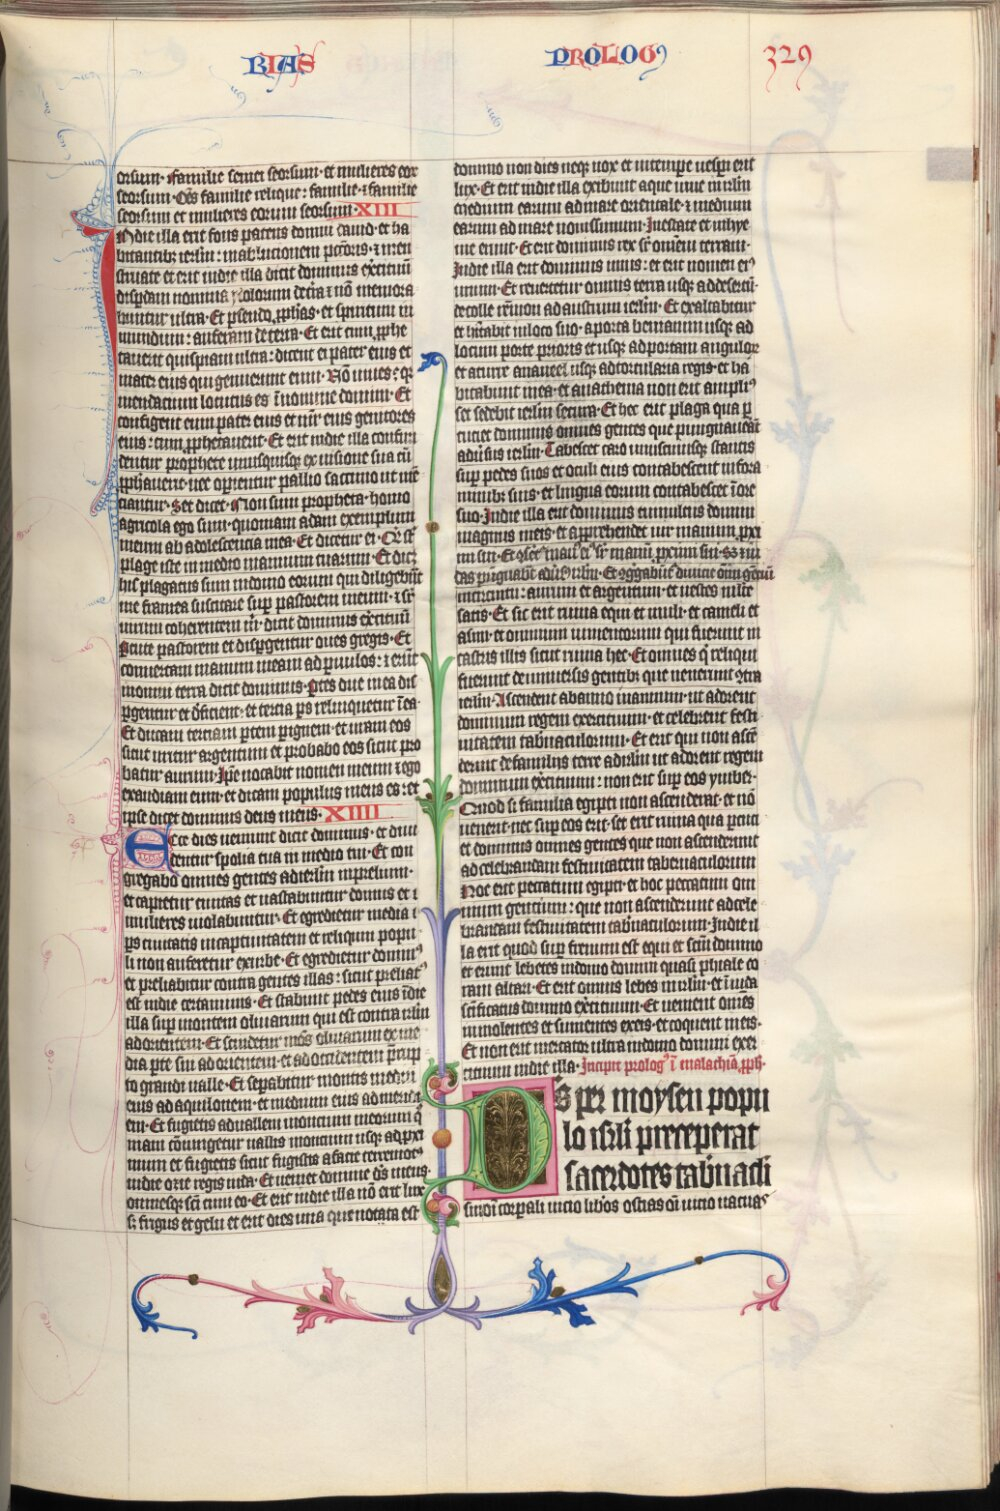 RIAS PROLOG9 329
orsum · ⁊ familie semei seorsum · et mulieres eor
seorsum · Oēs familie relique : familie ⁊ familie
seorsum et mulieres eorum seorsum · XIII
In die illa erit fons patens domui dauid · et ha
bitantibꝫ ierlm : in ablucionem pctoris · ⁊ men
struate et erit in die illa dicit dominus exercituū
disperdam nomina ydolorum de terra ⁊ nō memora
buntur ultra · Et pseudo prophas · et spiritum in
mundum : auferam de terra · Et erit cum prophe
tauerit quispiam ultra : dicent ei pater eius et
mater eius qui genuerunt eum · Nō uiues : qꝛ
mendacium locutus es ī nomine domini · Et
configent eum pater eius et mr̄ eius genitores
eius : cum prophetauerit · Et erit in die illa confun
dentur prophete unusquisqꝫ ex uisione sua cū
prophauerit · nec operientur pallio saccino ut men
ciantur · Set dicet · Non sum propheta · homo
agricola ego sum · quoniam adam exemplum
meum ab adolescencia mea · Et dicetur ei · Q st̄
plage iste in medio manuum tuarum · Et dicꝫ
his plagatus sum in domo eorum qui diligebāt
me framea suscitare super pastorem meum · ⁊ sr̄
uirum coherentem m̄ · dicit dominus exercituū
Percute pastorem et dispergentur oues gregis · Et
conuertam manum meam ad paruulos : ⁊ erūt
in omni terra dicit dominus · ptes due in ea dis
pergentur et deficient · et tercia ps relinquetur ī ea ·
Et ducam terciam ptem per ignem · et uram eos
sicut uritur argentum et probabo eos sicut pro
batur aurum · Ipse uocabit nomen meum ⁊ ego
exaudiam eum · et dicam populus meus es : et
ipse dicet dominus deus meus · XIIII
Ecce dies ueniunt dicit dominus · et diui
dentur spolia tua in medio tui · Et con
gregabo omnes gentes ad ierlm in prelium ·
et capietur ciuitas et uastabuntur domus et ⁊
mulieres uiolabuntur · Et egredietur media ⁊
ps ciuitatis in captiuitatem et reliqum popu
li non auferetur ex urbe · Et egredietur domin9
et preliabitur contra gentes illas : sicut preliat9
est in die certaminis · Et stabunt pedes eius ī die
illa super montem oliuarum qui est contra ierlm
ad orientem · Et scindetur mōs oliuarum ex me
dia pte sui ad orientem · et ad occidentem prerup
to grandi ualle · Et separabitur montis medium
eius ad aquilonem · et medium eius ad meridi
em · Et fugietis ad uallem moncium meorum q̄
niam coniungetur uallis moncium usqꝫ ad proxi
mum et fugietis sicut fugistis a facie terremot9
in die ozie regis iuda · Et ueniet dominus ds meus
omnesqꝫ sci cum eo · Et erit in die illa nō erit lux
sꝫ frigus et gelu et erit dies una que notata est
domino non dies neqꝫ nox et in tempre uesperi erit
lux · Et erit in die illa exibunt aque uiue in ierlm
medium earum ad mare orientale · ⁊ medium
earum ad mare nouissimum · In estate et in hye
me erunt · Et erit dominus rex sr̄ omnem terram ·
In die illa erit dominus unus : et erit nomen ei9
unum · Et reuertetur omnis terra usqꝫ ad desertū ·
de colle remmon ad austrum ierlm · Et exaltabitur
et habitabit in loco suo · a porta beniamin usqꝫ ad
locum porte prioris et usqꝫ ad portam angulor
et a turre ananeel usqꝫ ad torcularia regis · et ha
bitabunt in ea · et anathema non erit ampli9
set sedebit ierlm secura · Et hec erit plaga qua per
cuciet dominus omnes gentes que pugnauerūt
aduersus ierlm · Tabescet caro uniuscuiusqꝫ stantis
super pedes suos et oculi eius contabescent in fora
minibꝫ suis · et lingua eorum contabescet ī ore
suo · In die illa erit dominus tumultus domini
magnus in eis · et apprehendet uir manum proxi
mi sui ·
mercentur : aurum et argentum · et uestes multe
satis · Et sic erit ruina equi et muli · et cameli et
asini · et omnium iumentorum qui fuerint in
castris illis sicut ruina hec · Et omnes q̄ reliqui
fuerint de uniuersis gentibꝫ que uenerunt contra
ierlm · Ascendent ab anno in annum · ut adorent
dominum regem exercituum · et celebrent festi
uitatem tabernaculorum · Et erit qui non ascē
derint de familiis terre ad ierlm ut adorent regem
dominum exercituum : non erit super eos ymber ·
Quod si familia egipti non ascenderat · et nō
uenerit · nec super eos erit · set erit ruina qua percuciet
et dominus omnes gentes que non ascenderint
ad celebrandam festiuitatem tabernaculorum
Hoc erit peccatum egipti · et hoc peccatum om
nium gencium : que non ascenderint ad cele
brandam festiuitatem tabernaculorum · In die il
la erit quod super frenum est equi et scm domino
et erunt lebetes in domo domini quasi phiale co
ram altari · Et erit omnis lebes in ierlm · et ī iuda
scificatus domino exercituum · Et uenient omēs
immolentes et sumentes ex eis · et coquent in eis ·
Et non erit mercator ultra in domo domini exer
cituum in die illa · Incipit prolog9 ī malachiā proph ·
Ds per moysen popu
lo isrli preceperat
sacerdotes tabernacli
sui oī corporali uicio libros ostias oī uicio uacuas